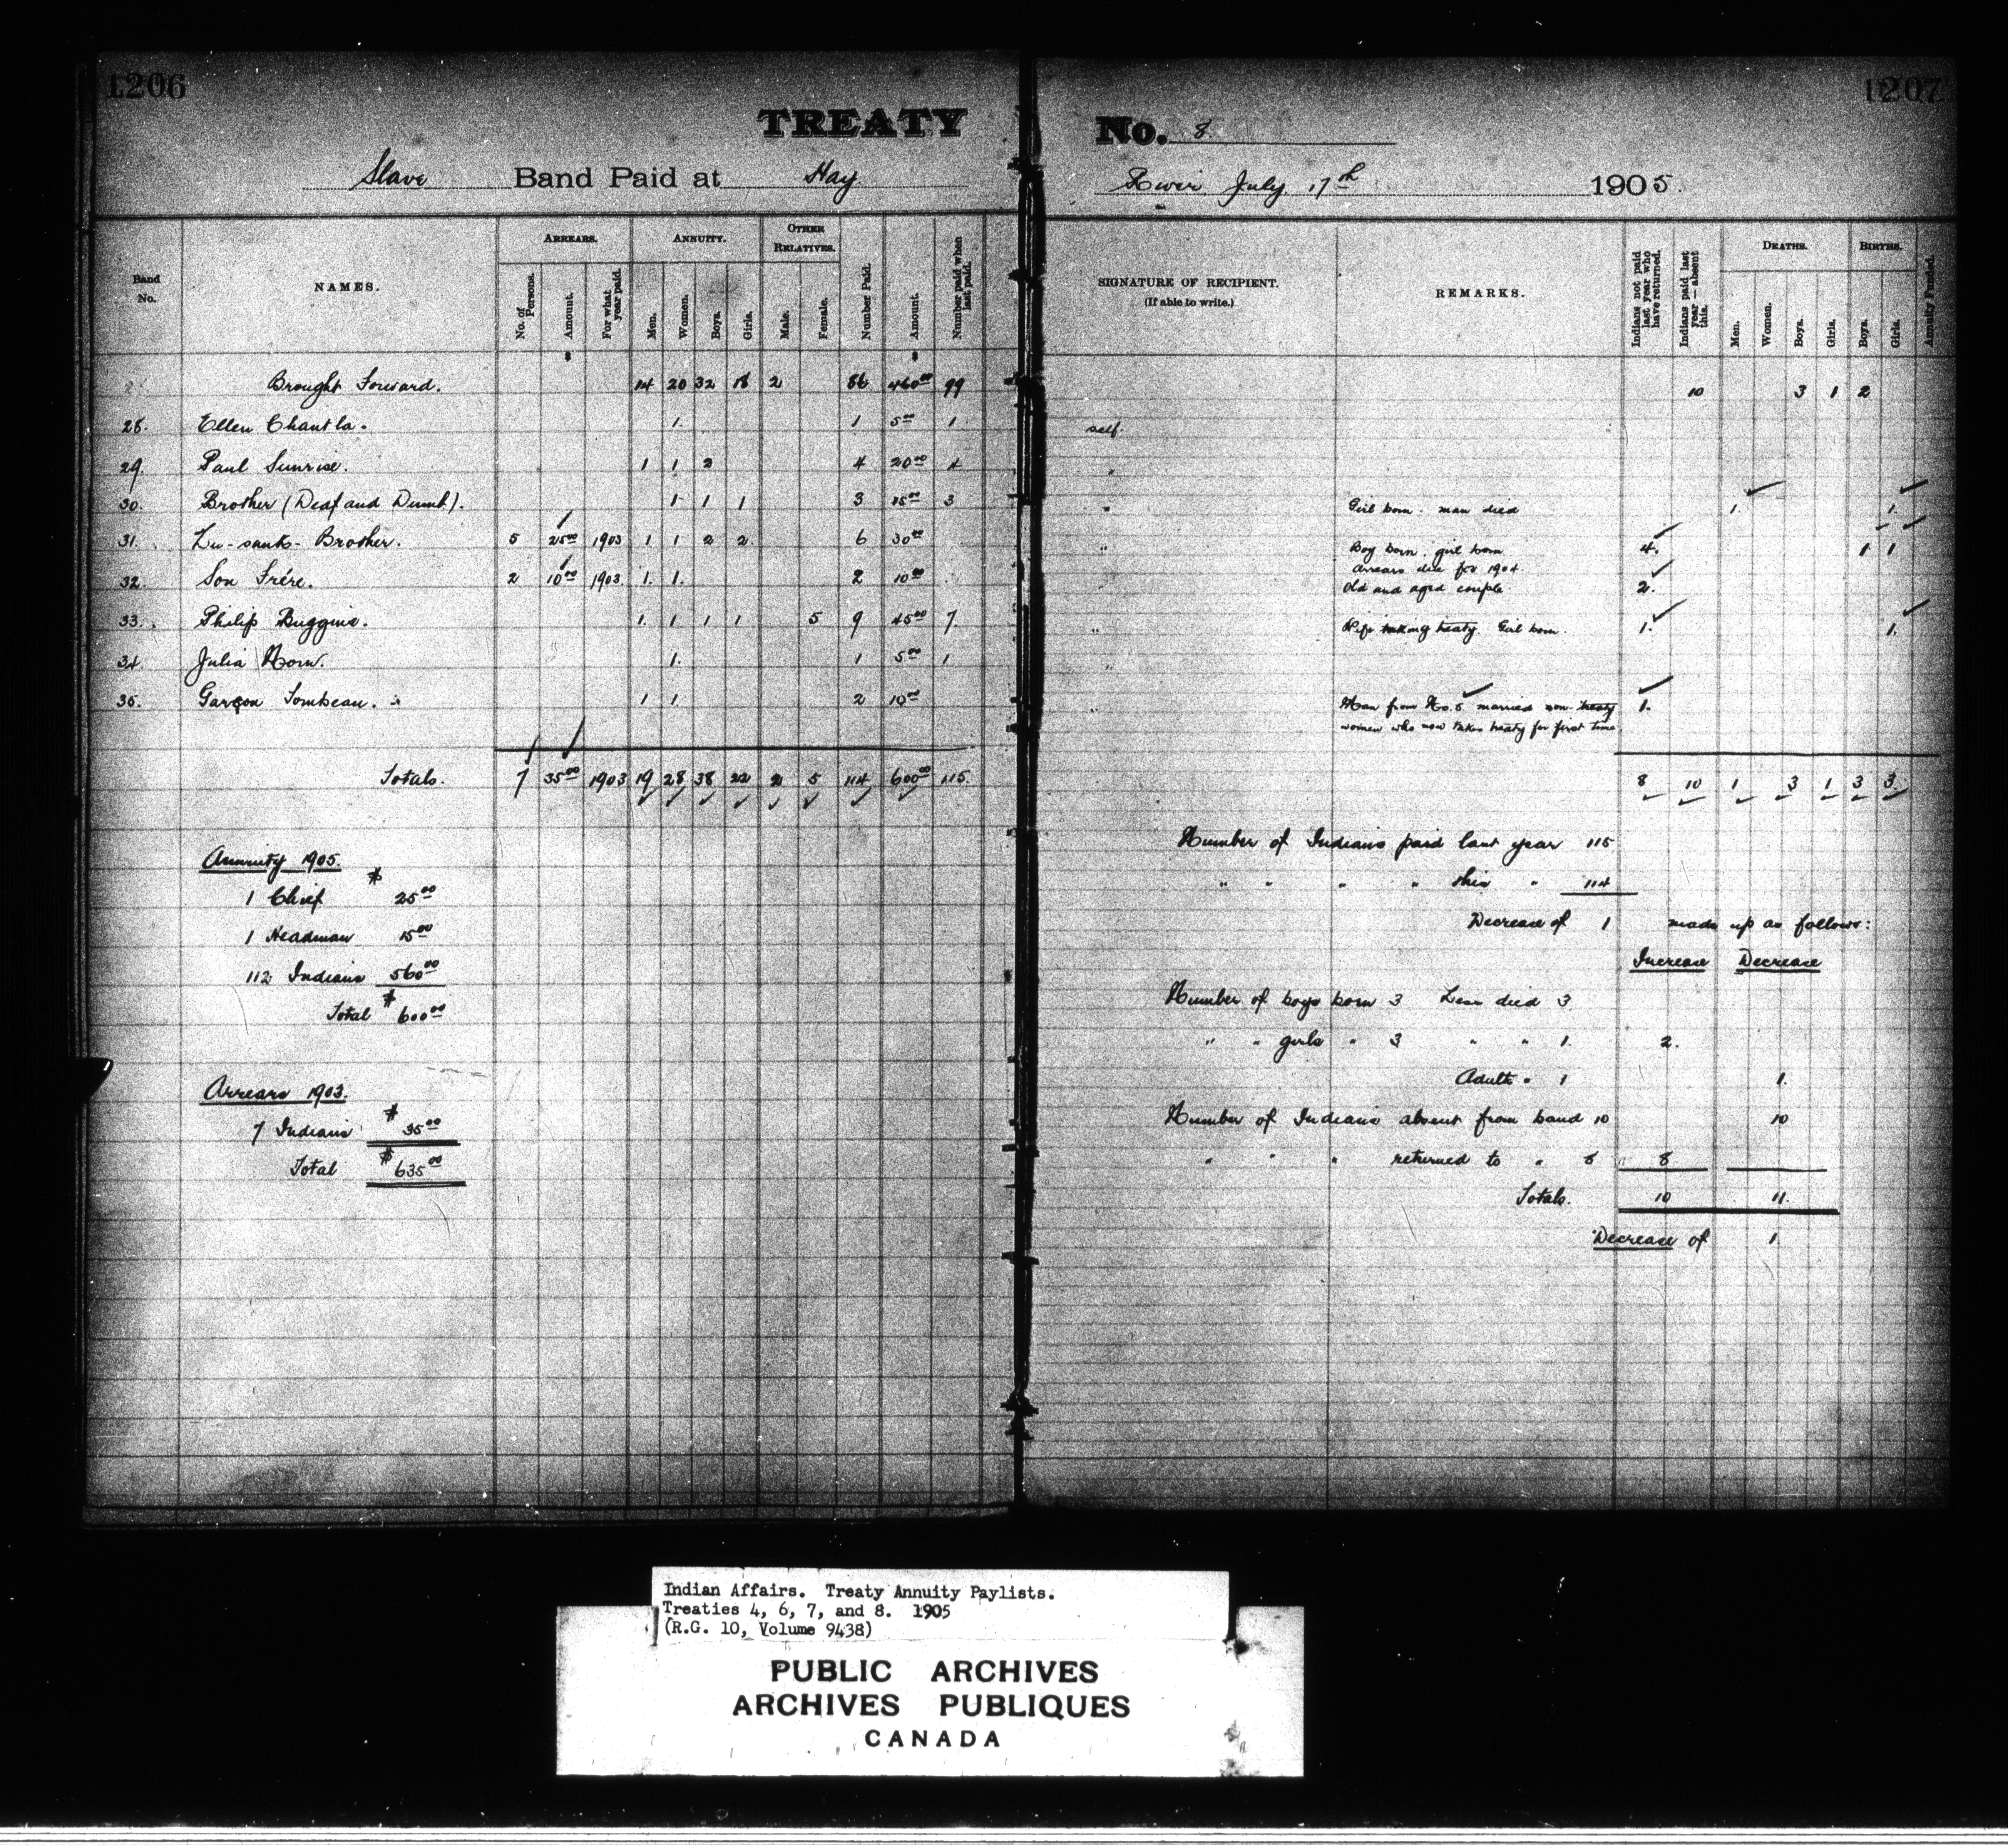 1206
1207
TREATY No. 8
Slave Band Paid at Hay River July 17th 1905.
Band No.
NAMES.
ARREARS.
No. of Persons.
Amount.
For what year paid.
ANNUITY.
Men.
Women.
Boys.
Girls.
OTHER RELATIVES.
Male.
Female.
Number Paid.
Amount.
Number paid when last paid.
SIGNATURE OF RECIPIENT.
(If able to write.)
REMARKS.
Indians not paid last year who have returned.
Indians paid last year—absent this.
DEATHS.
Men.
Women.
Boys.
Girls.
BIRTHS.
Boys.
Girls.
Annuity Funded.
Brought Forward. 14 20 32 18 2 86 460.00 99 10 3 1 2
28. Ellen Chantla. 1. 1 5.00 1 self.
29. Paul Sunrise. 1 1 2 4 20.00 4 "
30. Brother (Deaf and Dumb). 1 1 1 3 15.00 3 " Girl born. man died 1. 1.
31. Brother. 5 25.00 1903 1 1 2 2 6 30.00 " Boy born. girl born 4. 1 1
arrears due for 1904.
32. Son Frére. 2 10.00 1903. 1. 1. 2 10.00 Old and aged couple. 2.
33. Philip Buggins. 1. 1 1 1 5 9 45.00 7. " Wife taking treaty. Girl born. 1. 1.
34. Julia Horn. 1. 1 5.00 1 "
35. Garçon Tombeau. 1 1 2 10.00 " Man from No. 5 married non-treaty 1.
women who now takes treaty for first time
Totals. 7 35.00 1903 19 28 38 22 2 5 114 600.00 115. 8 10 1 3 1 3 3.
Annuity 1905.
1 Chief $ 25.00
1 Headman 15.00
112 Indians 560.00
Total $ 600.00
Arrears 1903.
7 Indians $ 35.00
Total $ 635.00
Number of Indians paid last year 115
" " " " this " 114
Decrease of 1 made up as follows:
Increase Decrease
Number of boys born 3 Less died 3.
" " girls " 3 " " 1. 2.
Adults " 1 1.
Number of Indians absent from band 10 10
" " " returned to " 8 8
Totals. 10 11.
Decrease of 1.
Indian Affairs. Treaty Annuity Paylists.
Treaties 4, 6, 7, and 8. 1905
(R.G. 10, Volume 9438)
PUBLIC ARCHIVES
ARCHIVES PUBLIQUES
CANADA